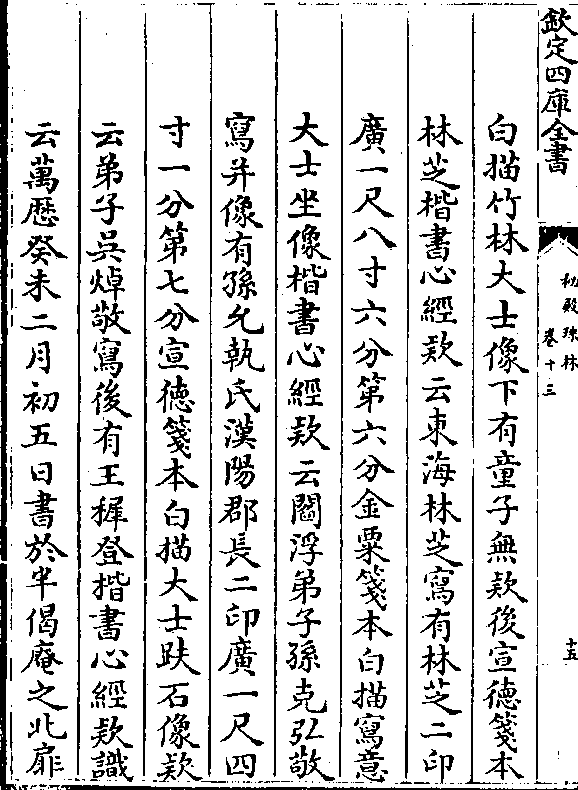 欽定四庫全書
秘殿珠林 卷十三
十五
白描竹林大士像下有童子無欵後宣德箋本
林芝楷書心經欵云東海林芝寫有林芝二印
廣一尺八寸六分第六分金粟箋本白描寫意
大士坐像楷書心經欵云閻浮弟子孫克弘敬
寫并像有孫允執氏漢陽郡長二印廣一尺四
寸一分第七分宣徳箋本白描大士趺石像欵
云弟子吳焯敬寫後有王穉登楷書心經欵識
云萬厯癸未二月初五日書於半偈庵之北扉